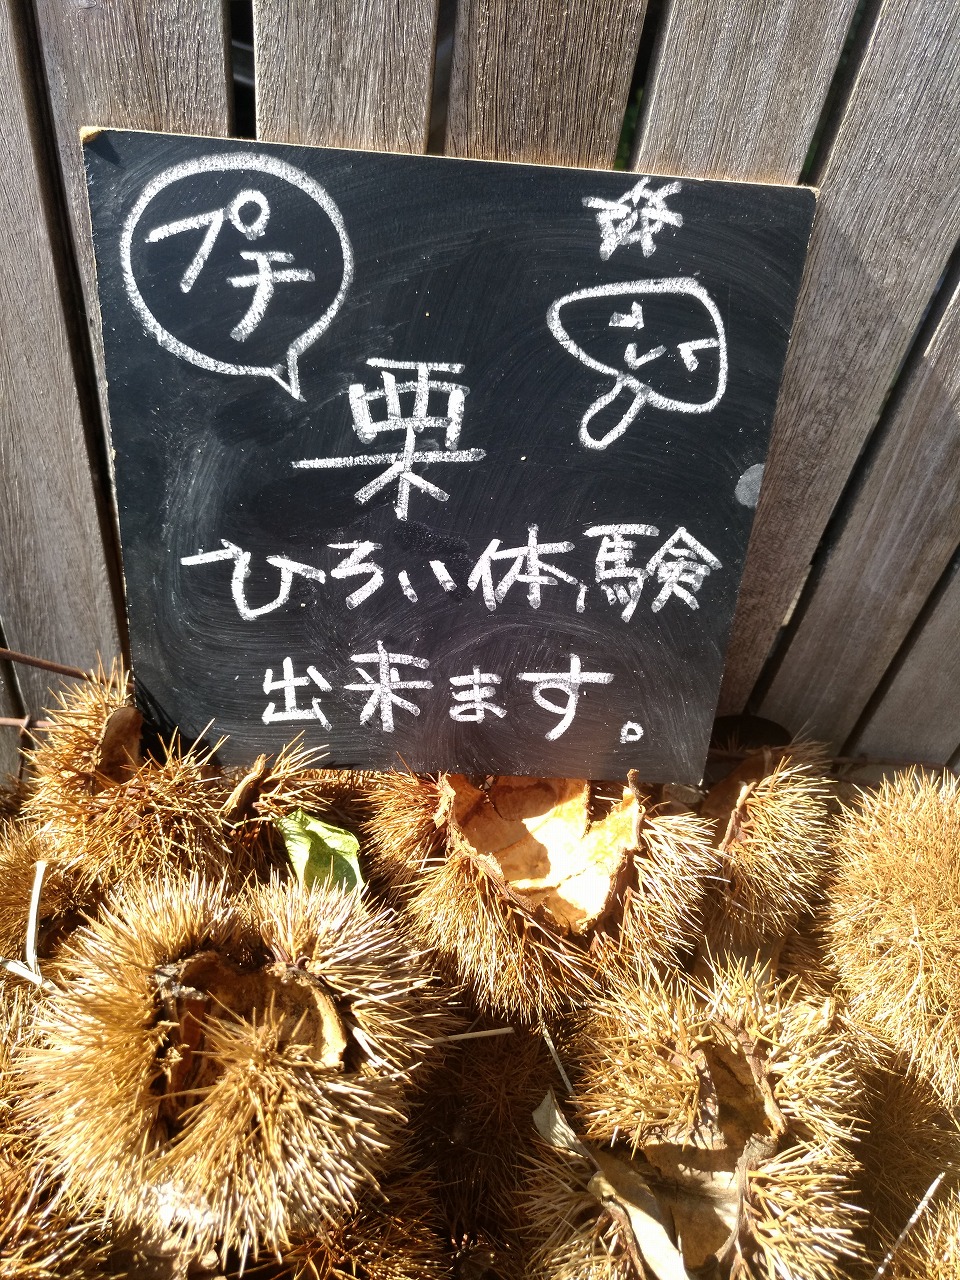 プチ
栗
ひろい体験
出来ます。